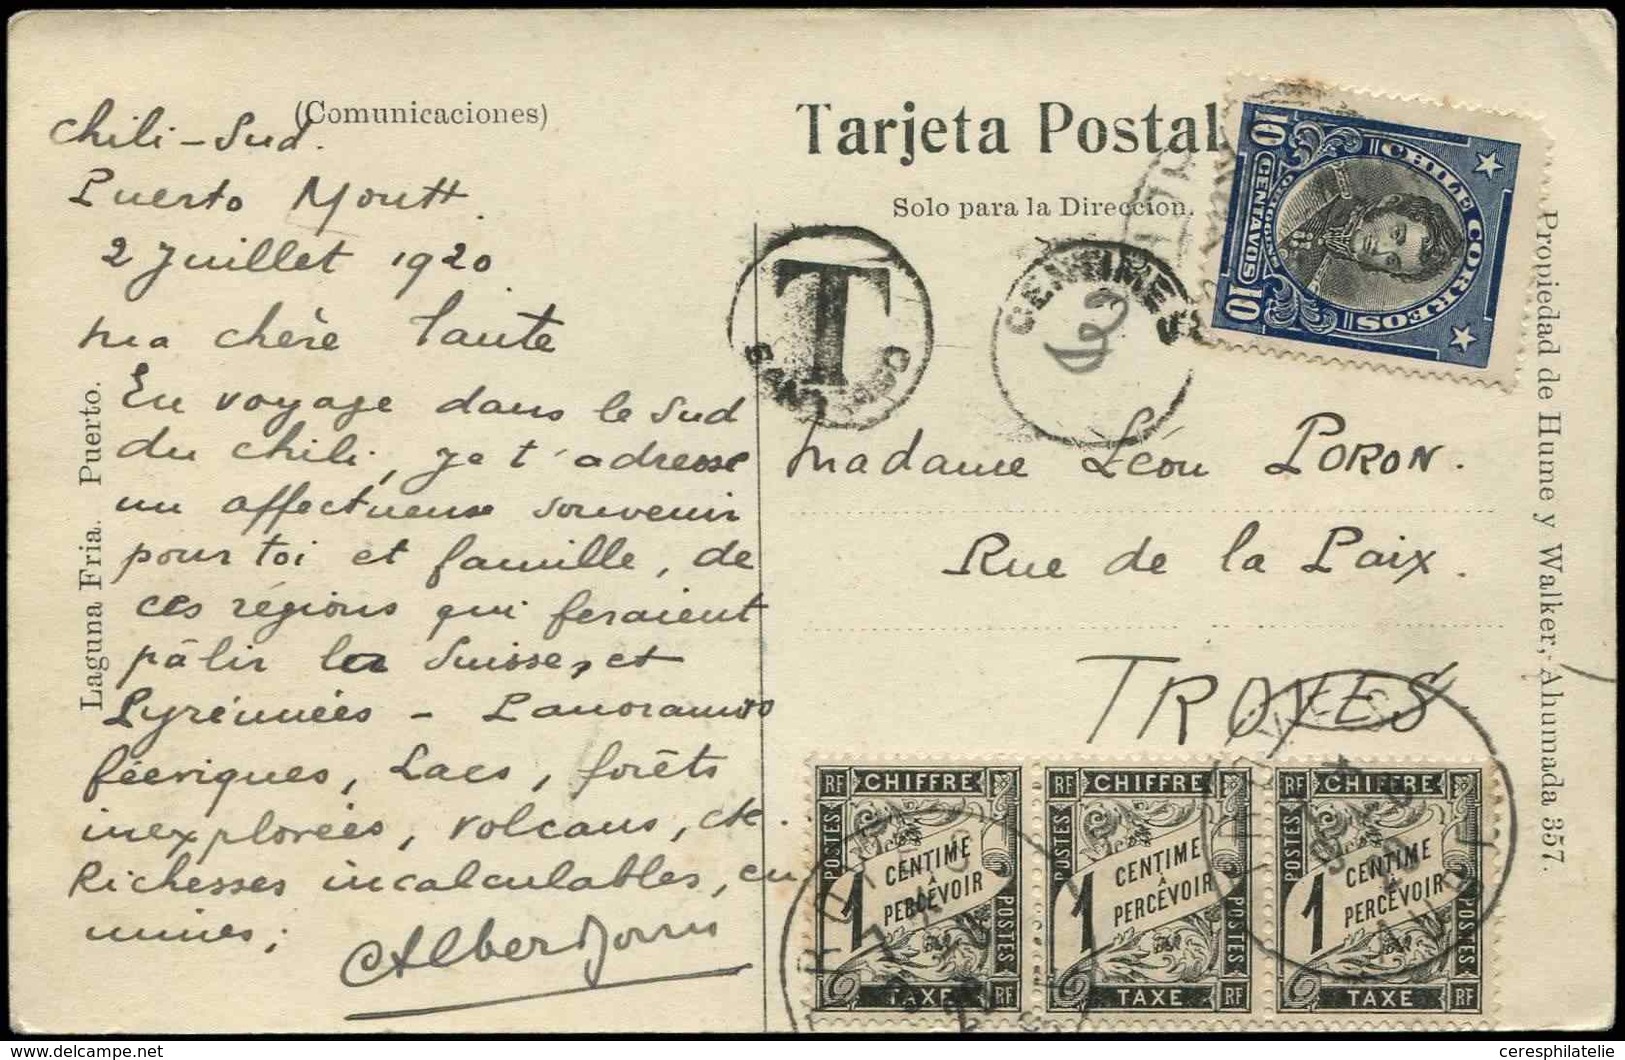 (Comunicaciones)
Chili - Sud.
Puerto Montt.
2 Juillet 1920
Ma chère Tante
En voyage dans le Sud
du Chili, je t'adresse
un affectueux souvenir
pour toi et famille, de
ces régions qui feraient
pâlir la Suisse, et
Pyrénnées - Panoramas
féeriques, Lacs, forêts
inexplorées, volcans, etc.
Richesses incalculables, en
mines;
Albert
Laguna Fria. Puerto.
Tarjeta Postal
Solo para la Direccion.
T
CENTIMES
CHILE CORREOS
10 CENTAVOS 10
Madame Léon PORON.
Rue de la Paix.
TROYES
Propiedad de Hume y Walker,- Ahumada 357.
RF CHIFFRE
POSTES
1 CENTIME
À
PERCEVOIR
POSTES
TAXE RF
RF CHIFFRE
POSTES
1 CENTIME
À
PERCEVOIR
POSTES
TAXE RF
RF CHIFFRE
POSTES
1 CENTIME
À
PERCEVOIR
POSTES
TAXE RF
www.delcampe.net
ceresphilatelie